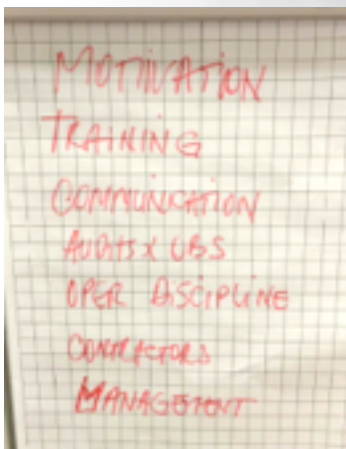 MOTIVATION
TRAINING
COMMUNICATION
AUDITS & OBS
OPER DISCIPLINE
CONTRACTORS
MANAGEMENT